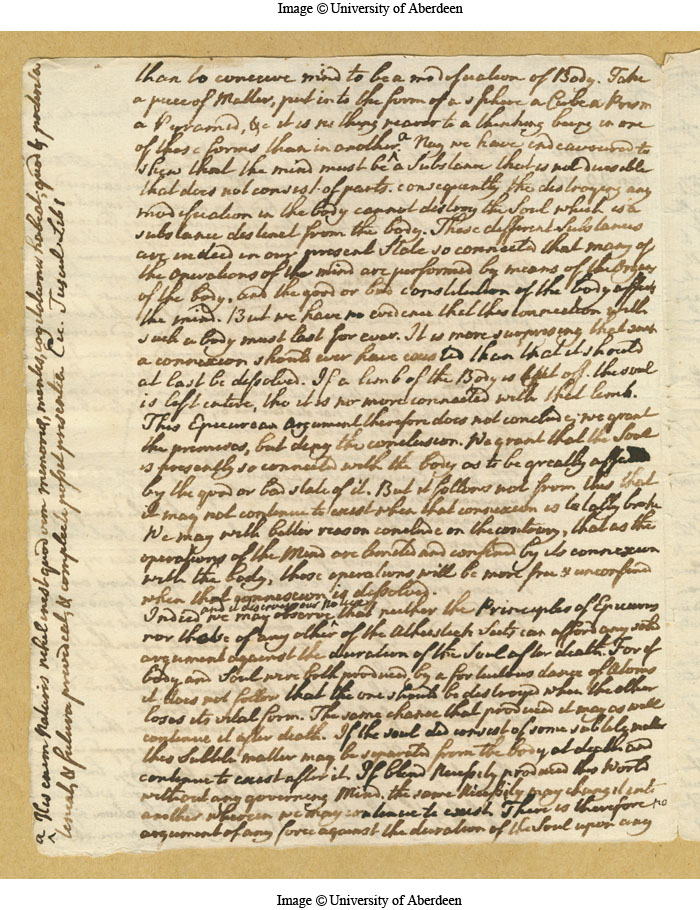 Image © University of Aberdeen
than to conceive mind to be a modification of Body. Take
a piece of Matter, put into the form of a sphere a Cube a Prism
a Pyramid, &c it is no thing nearer to a thinking being in one
of these forms than in another. ^a Nay we have indeavoured to
shew that the mind must be a Substance that is not divisible
that does not consist of parts. consequently the destroying any
modification in the body cannot destroy the Soul which is a
substance distinct from the body. These different Substances
are indeed in our present State so connected that many of
the Operations of the mind are performed by means of the Organs
of the body, and the good or bad constitution of the body affects
the mind. But we have no evidence that this connection with
such a body must last for ever. It is more surprising that such
a connexion should ever have existed than that it should
at last be dissolved. If a limb of the Body is cut off. the soul
is left entire, tho it is no more connected with that limb.
This Epicurean Argument therefore does not conclude; we grant
the premises, but deny the conclusion. We grant that the Soul
is presently so connected with the body as to be greatly affected
by the good or bad state of it. But it follows not from this that
it may not continue to exist when that connexion is totally broke
We may with better reason conclude on the contrary, that as the
operations of the Mind are limited and confined by its connexion
with the body, those operations will be more free & unconfined
when that connexion is dissolved.
and it deserves our Notice
Indeed we may observe that neither the Principles of Epicurus
nor those of any other of the Atheistick Sects can afford any solid
argument against the duration of the Soul after death. For if
body and Soul were both produced by a fortuitous dance of Atoms
it does not follow that the one should be destroyed when the other
loses its vital form. The same chance that produced it may as well
continue it after death. If the soul did consist of some subtile matter
this Subtile matter may be separated from the body at death and
continue to exist after it. If blind Necessity produced this World
without any governing Mind. the same Necessity may change it into
another wherein we may continue to exist. There is therefore no
argument of any force against the duration of the Soul upon any
a His enim Naturis nihil inest quod vim memoriæ, mentis, cogitationis habeat, quod & præterita
teneat, & futura provideat, & complecti possit præsentia Cic. Tuscul. Lib 1
Image © University of Aberdeen